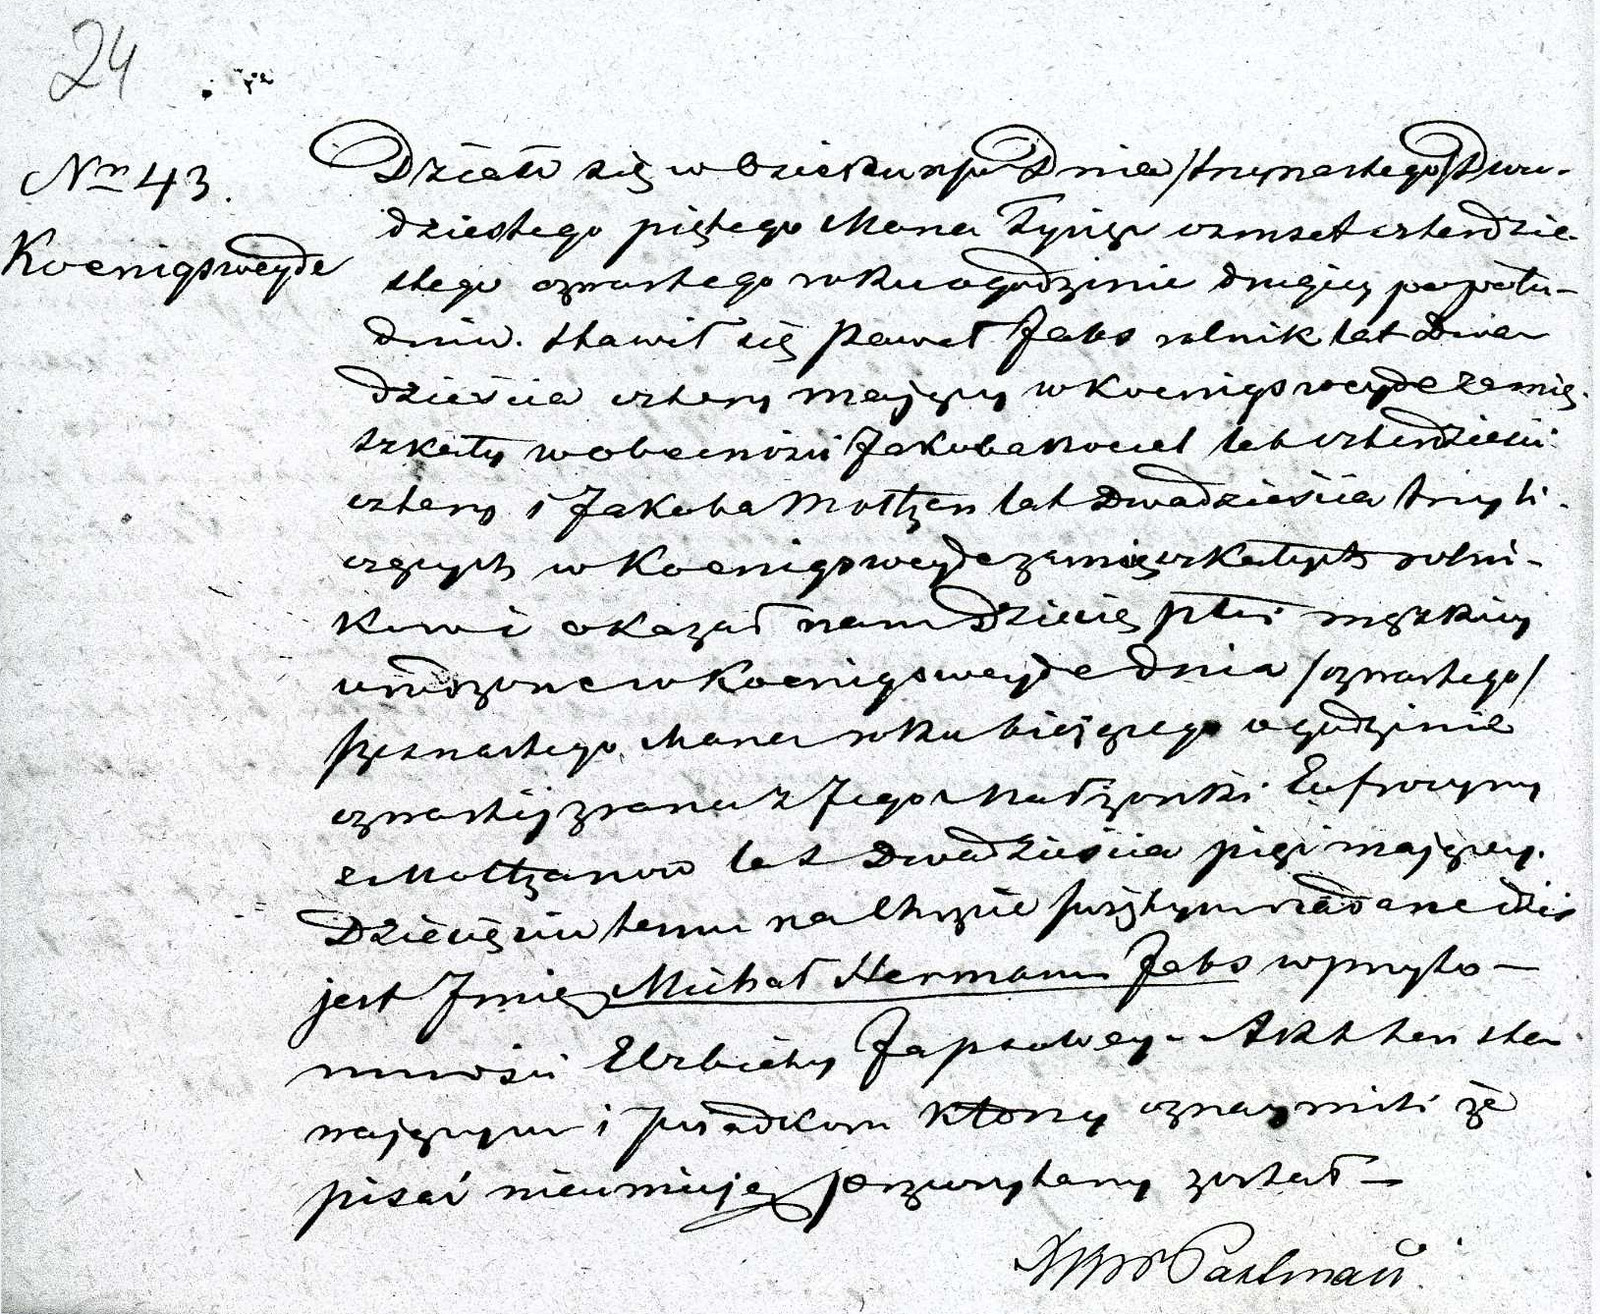 24
Nro 43.
Koenigsweyde
Działo się w Dnia /trzynastego/ Dwu-
dziestego piątego Marca Tysiąc osmset czterdzie-
stego czwartego roku o godzinie drugiej popołu-
dniu. Stawił się Paweł Jabs rolnik lat Dwa
dzieścia cztery mający w Koenigsweyde zamię-
szkały w obecności Jakuba lat czterdzieści
cztery i Jakoba Moltzan lat Dwadzieścia trzy li-
czących w Koenigsweyde zamięszkałych rolni-
ków i okazał nam Dziecię płci męzkiey
urodzone w Koenigsweyde dnia /czwartego/
szesnastego Marca roku bieżącego o godzinie
czwartej z rana z Jego Małżonki Eufrozyny
z Moltzanow lat Dwadzieścia pięć mającey.
Dziecięciu temu na Chrzcie świętym nadane dziś
jest Imie Michał Hermann Jabs w przyto-
mności Elżbiety Japsowey. Akt ten sta-
wającym i świadkom ktorzy oznaymili że
pisać nieumieją przeczytany został —